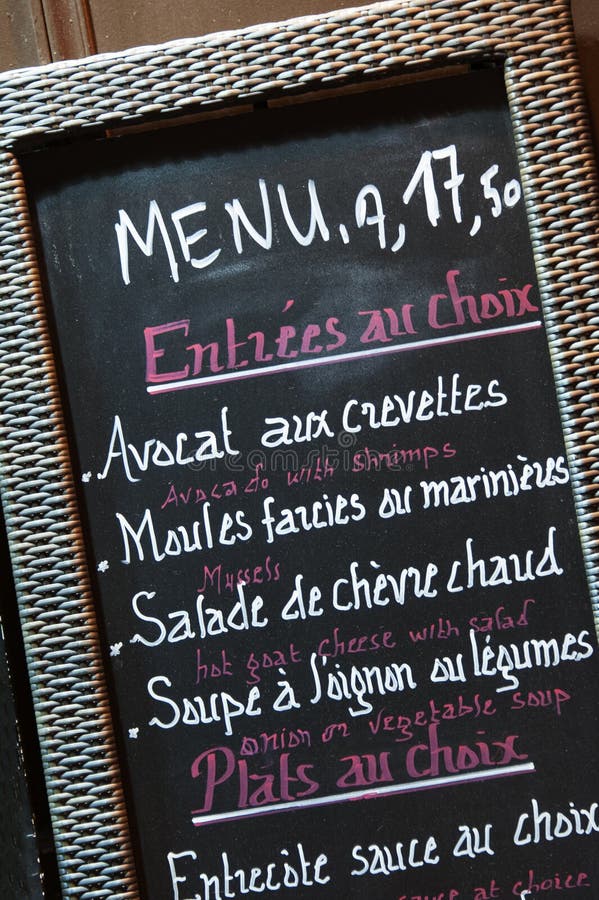 MENU. A, 17,50
Entrées au choix
. Avocat aux crevettes
Avocado with shrimps
* Moules farcies ou marinières
Mussels
* Salade de chèvre chaud
hot goat cheese with salad
* Soupe à l'oignon ou légumes
onion or vegetable soup
Plats au choix
Entrecôte sauce au choix
sauce at choice